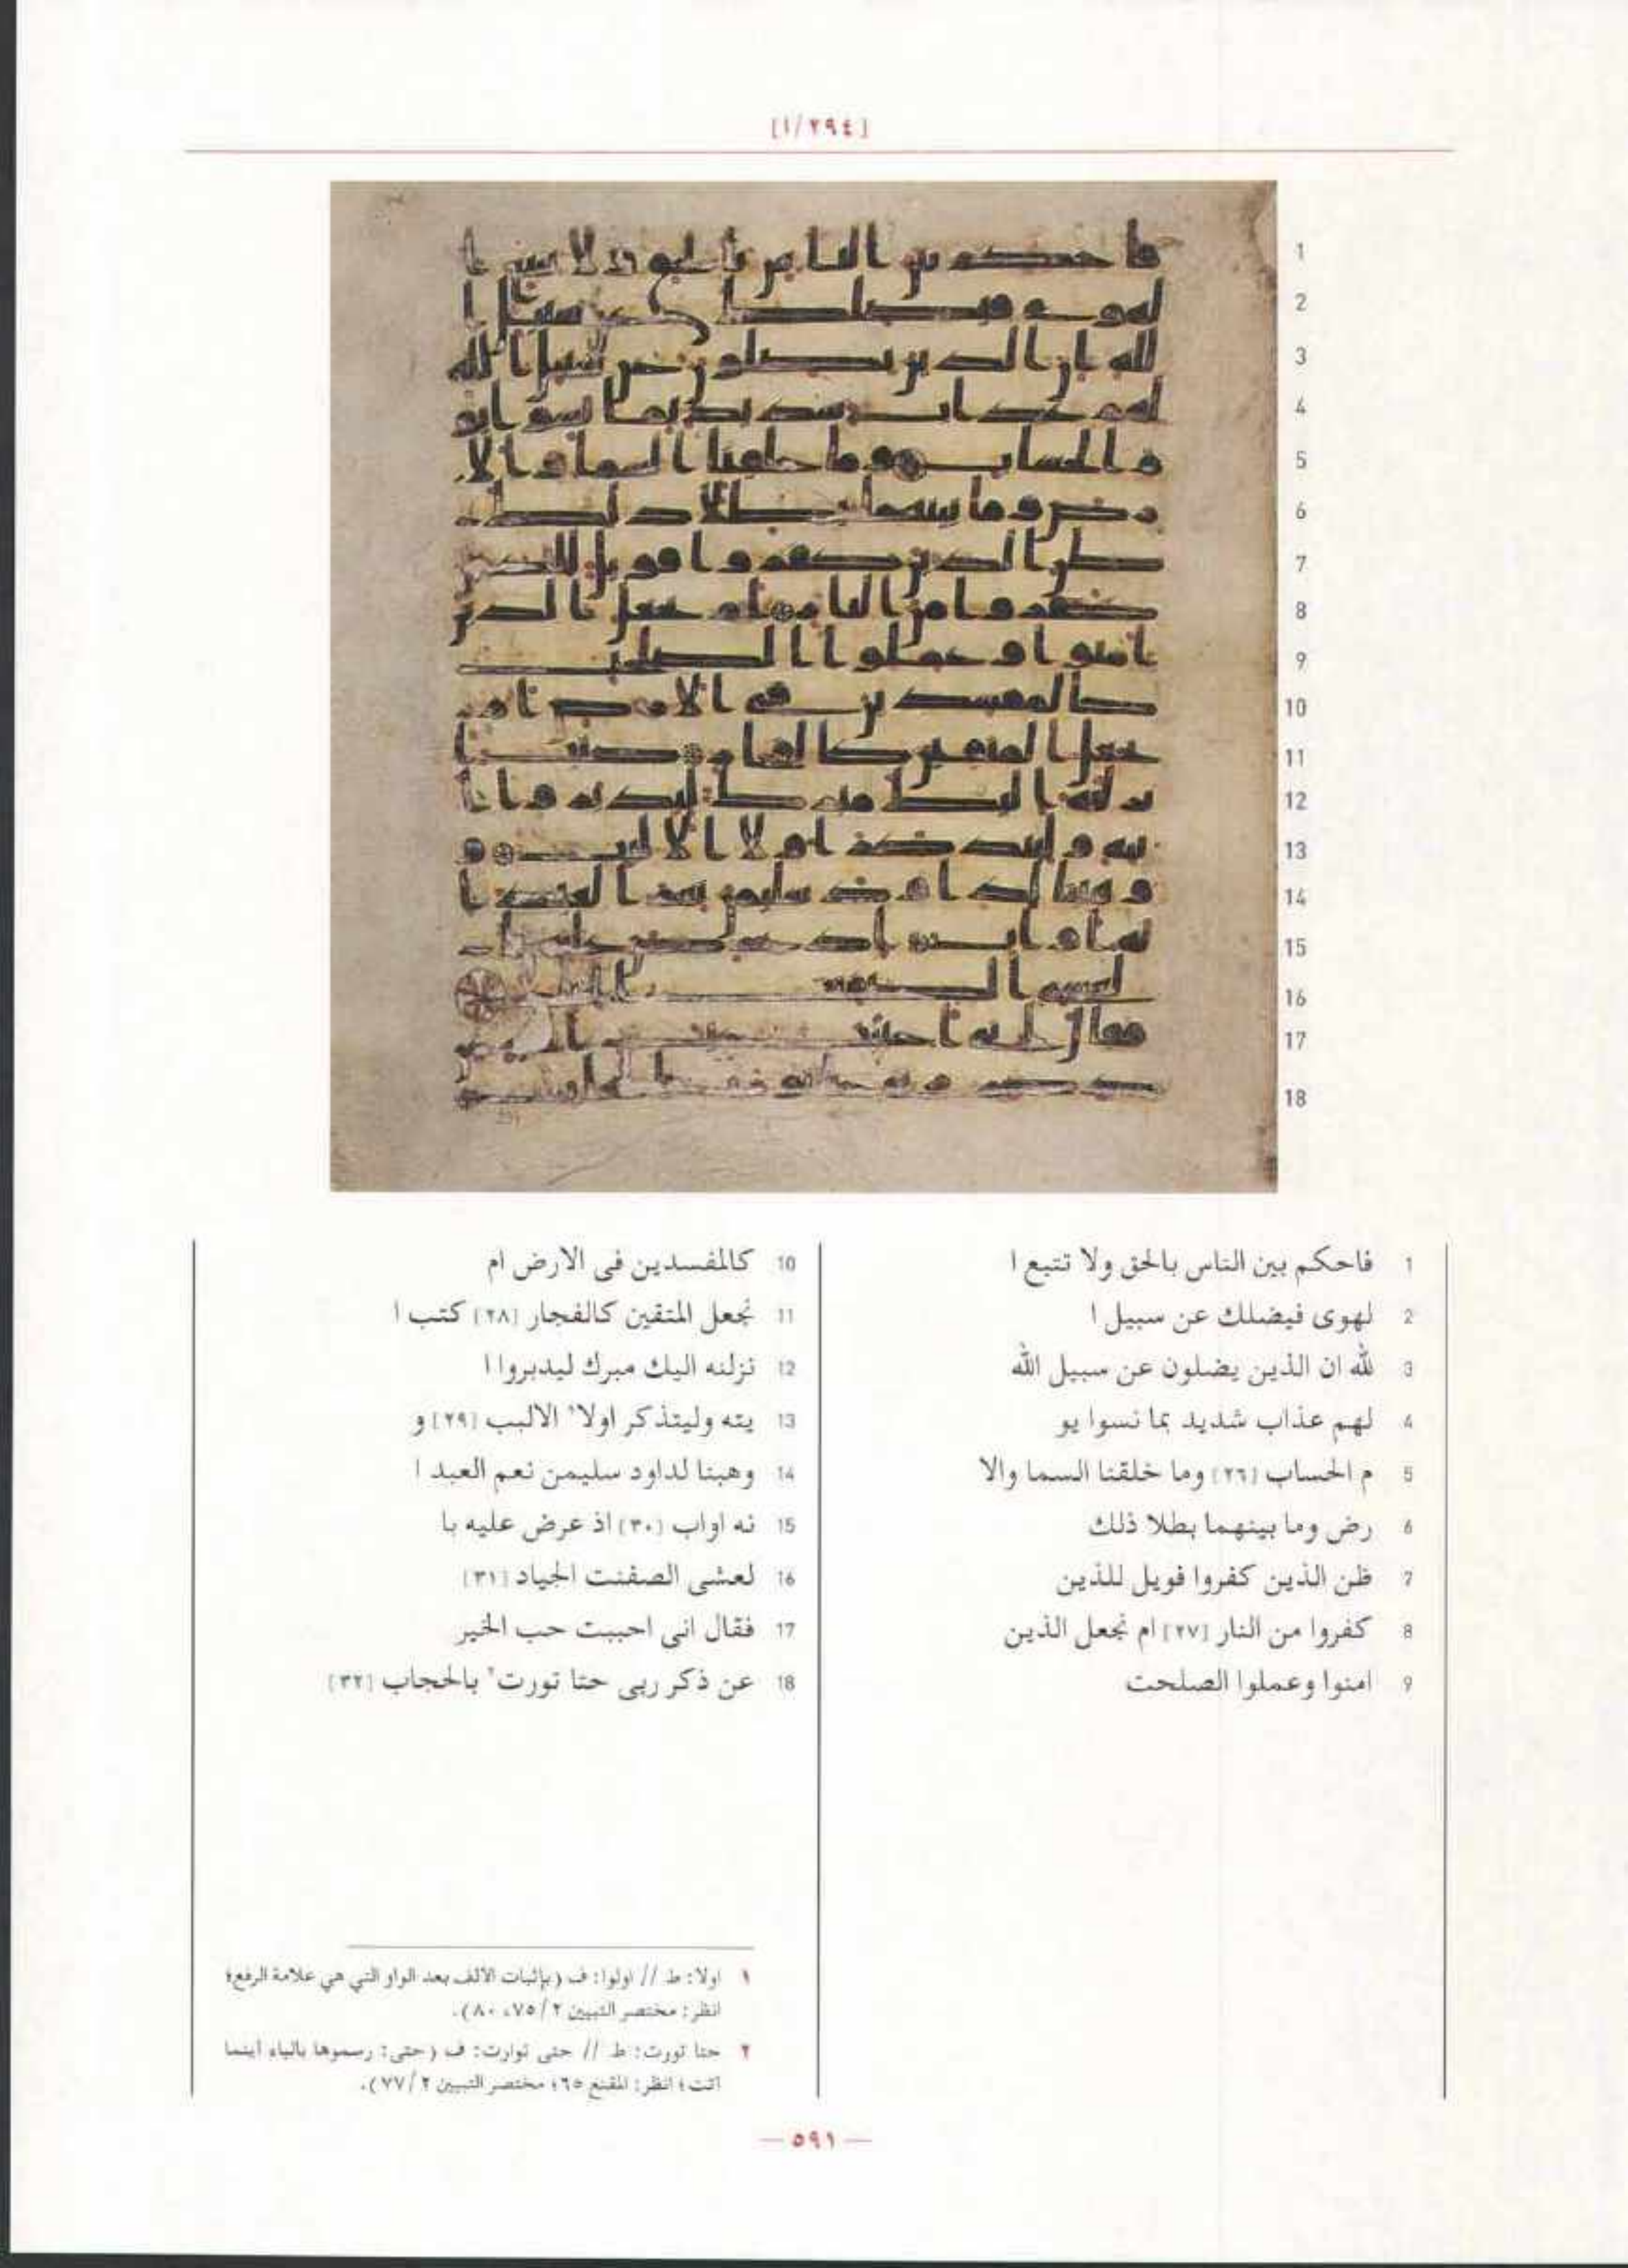 [٢٩٤/ا]
1
2
3
4
5
6
7
8
9
10
11
12
13
14
15
16
17
18
1 فاحكم بين الناس بالحق ولا تتبع ا
2 لهوى فيضلك عن سبيل ا
3 لله ان الذين يضلون عن سبيل الله
4 لهم عذاب شديد بما نسوا يو
5 م الحساب [٢٦] وما خلقنا السما والا
6 رض وما بينهما بطلا ذلك
7 ظن الذين كفروا فويل للذين
8 كفروا من النار [٢٧] ام نجعل الذين
9 امنوا وعملوا الصلحت
10 كالمفسدين فى الارض ام
11 نجعل المتقين كالفجار [٢٨] كتب ا
12 نزلنه اليك مبرك ليدبروا ا
13 يته وليتذكر اولا١ الالبب [٢٩] و
14 وهبنا لداود سليمن نعم العبد ا
15 نه اواب [٣٠] اذ عرض عليه با
16 لعشى الصفنت الجياد [٣١]
17 فقال انى احببت حب الخير
18 عن ذكر ربى حتا تورت٢ بالحجاب [٣٢]
١ اولا: ط // اولوا: ف (بإثبات الالف بعد الواو التي هي علامة الرفع؛
انظر: مختصر التبيين ٢/ ٧٥، ٨٠).
٢ حتا تورت: ط // حتى توارت: ف (حتى: رسموها بالياء أينما
اتت؛ انظر: المقنع ٦٥؛ مختصر التبيين ٢/ ٧٧).
— ٥٩١ —